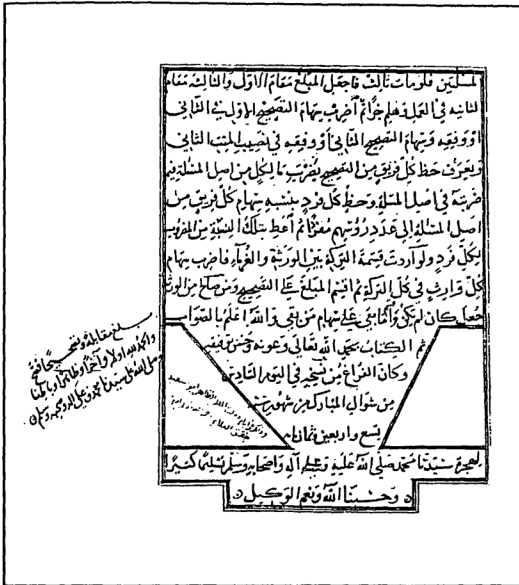 المسئلتين فلو مات ثالث فاجعل المبلغ مقام الاول والثالثه مقام
الثانيه في العمل وهلم جرا ثم اضرب سهام التصحيح الاول في الثاني
او وفقه وسهام التصحيح الثاني او وفقه في نصيب الميت الثاني
ويعرف حظ كل فريق من التصحيح بضرب ما لكل من اصل المسئلة فيما
ضربته في اصل المسئلة وحظ كل فرد بنسبة سهام كل فريق من
اصل المسئلة الى عدد رؤسهم مفردا ثم اعط بتلك النسبة من المضروب
لكل فرد ولو اردت قسمة التركة بين الورثة والغرماء فاضرب سهام
كل وارث في كل التركة ثم اقسم المبلغ على التصحيح ومن صالح من الورثة
جعل كان لم يكن واقسم الباقي على سهام من بقي والله اعلم بالصواب
تم الكتاب بحمد الله تعالى وعونه وحسن توفيقه
وكان الفراغ من نسخه في اليوم السادس
من شوال المبارك من شهور سنة
تسع واربعين وثمانمايه
لهجرة سيدنا محمد صلى الله عليه وعلى آله واصحابه وسلم تسليما كثيرا
وحسبنا الله ونعم الوكيل
بلغ مقابلة وتصحيحا فصح
والحمد لله اولا وآخرا وظاهرا وباطنا
وصلى الله على سيدنا محمد وعلى آله وصحبه وسلم